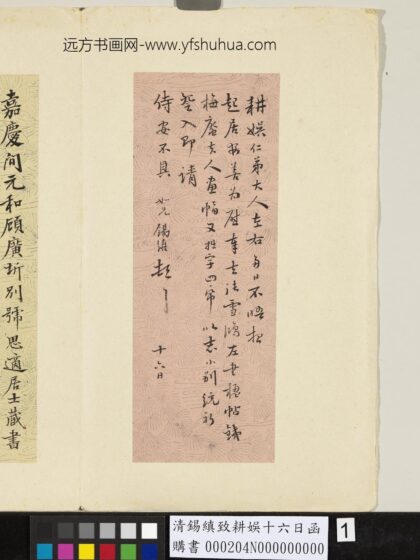 远方书画网-www.yfshuhua.com
耕娛仁弟大人左右多日不晤想
起居安善為慰奉去 雪 左 帖
梅盦夫人畫幅又拙字四帋以志小別統祈
詧入即請
侍安不具 如兄錫縝頓首
十六日
嘉慶間元和顧廣圻別號思適居士藏書
清錫縝致耕娛十六日函
購書 000204N000000000
1